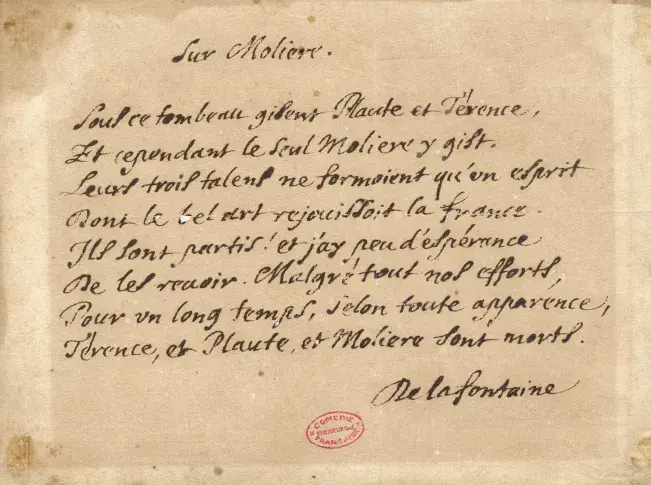 Sur Moliere.
Sous ce tombeau gisent Plaute et Térence,
Et cependant le seul Moliere y gist.
Leurs trois talens ne formoient qu'vn esprit
Dont le bel art rejouissoit la france.
Ils sont partis! et j'ay peu d'espérance
De les reuoir. Malgré tout nos efforts,
Pour vn long temps, selon toute apparence,
Térence, et Plaute, et Moliere sont morts.
De la fontaine
COMEDIE
FRANÇAISE